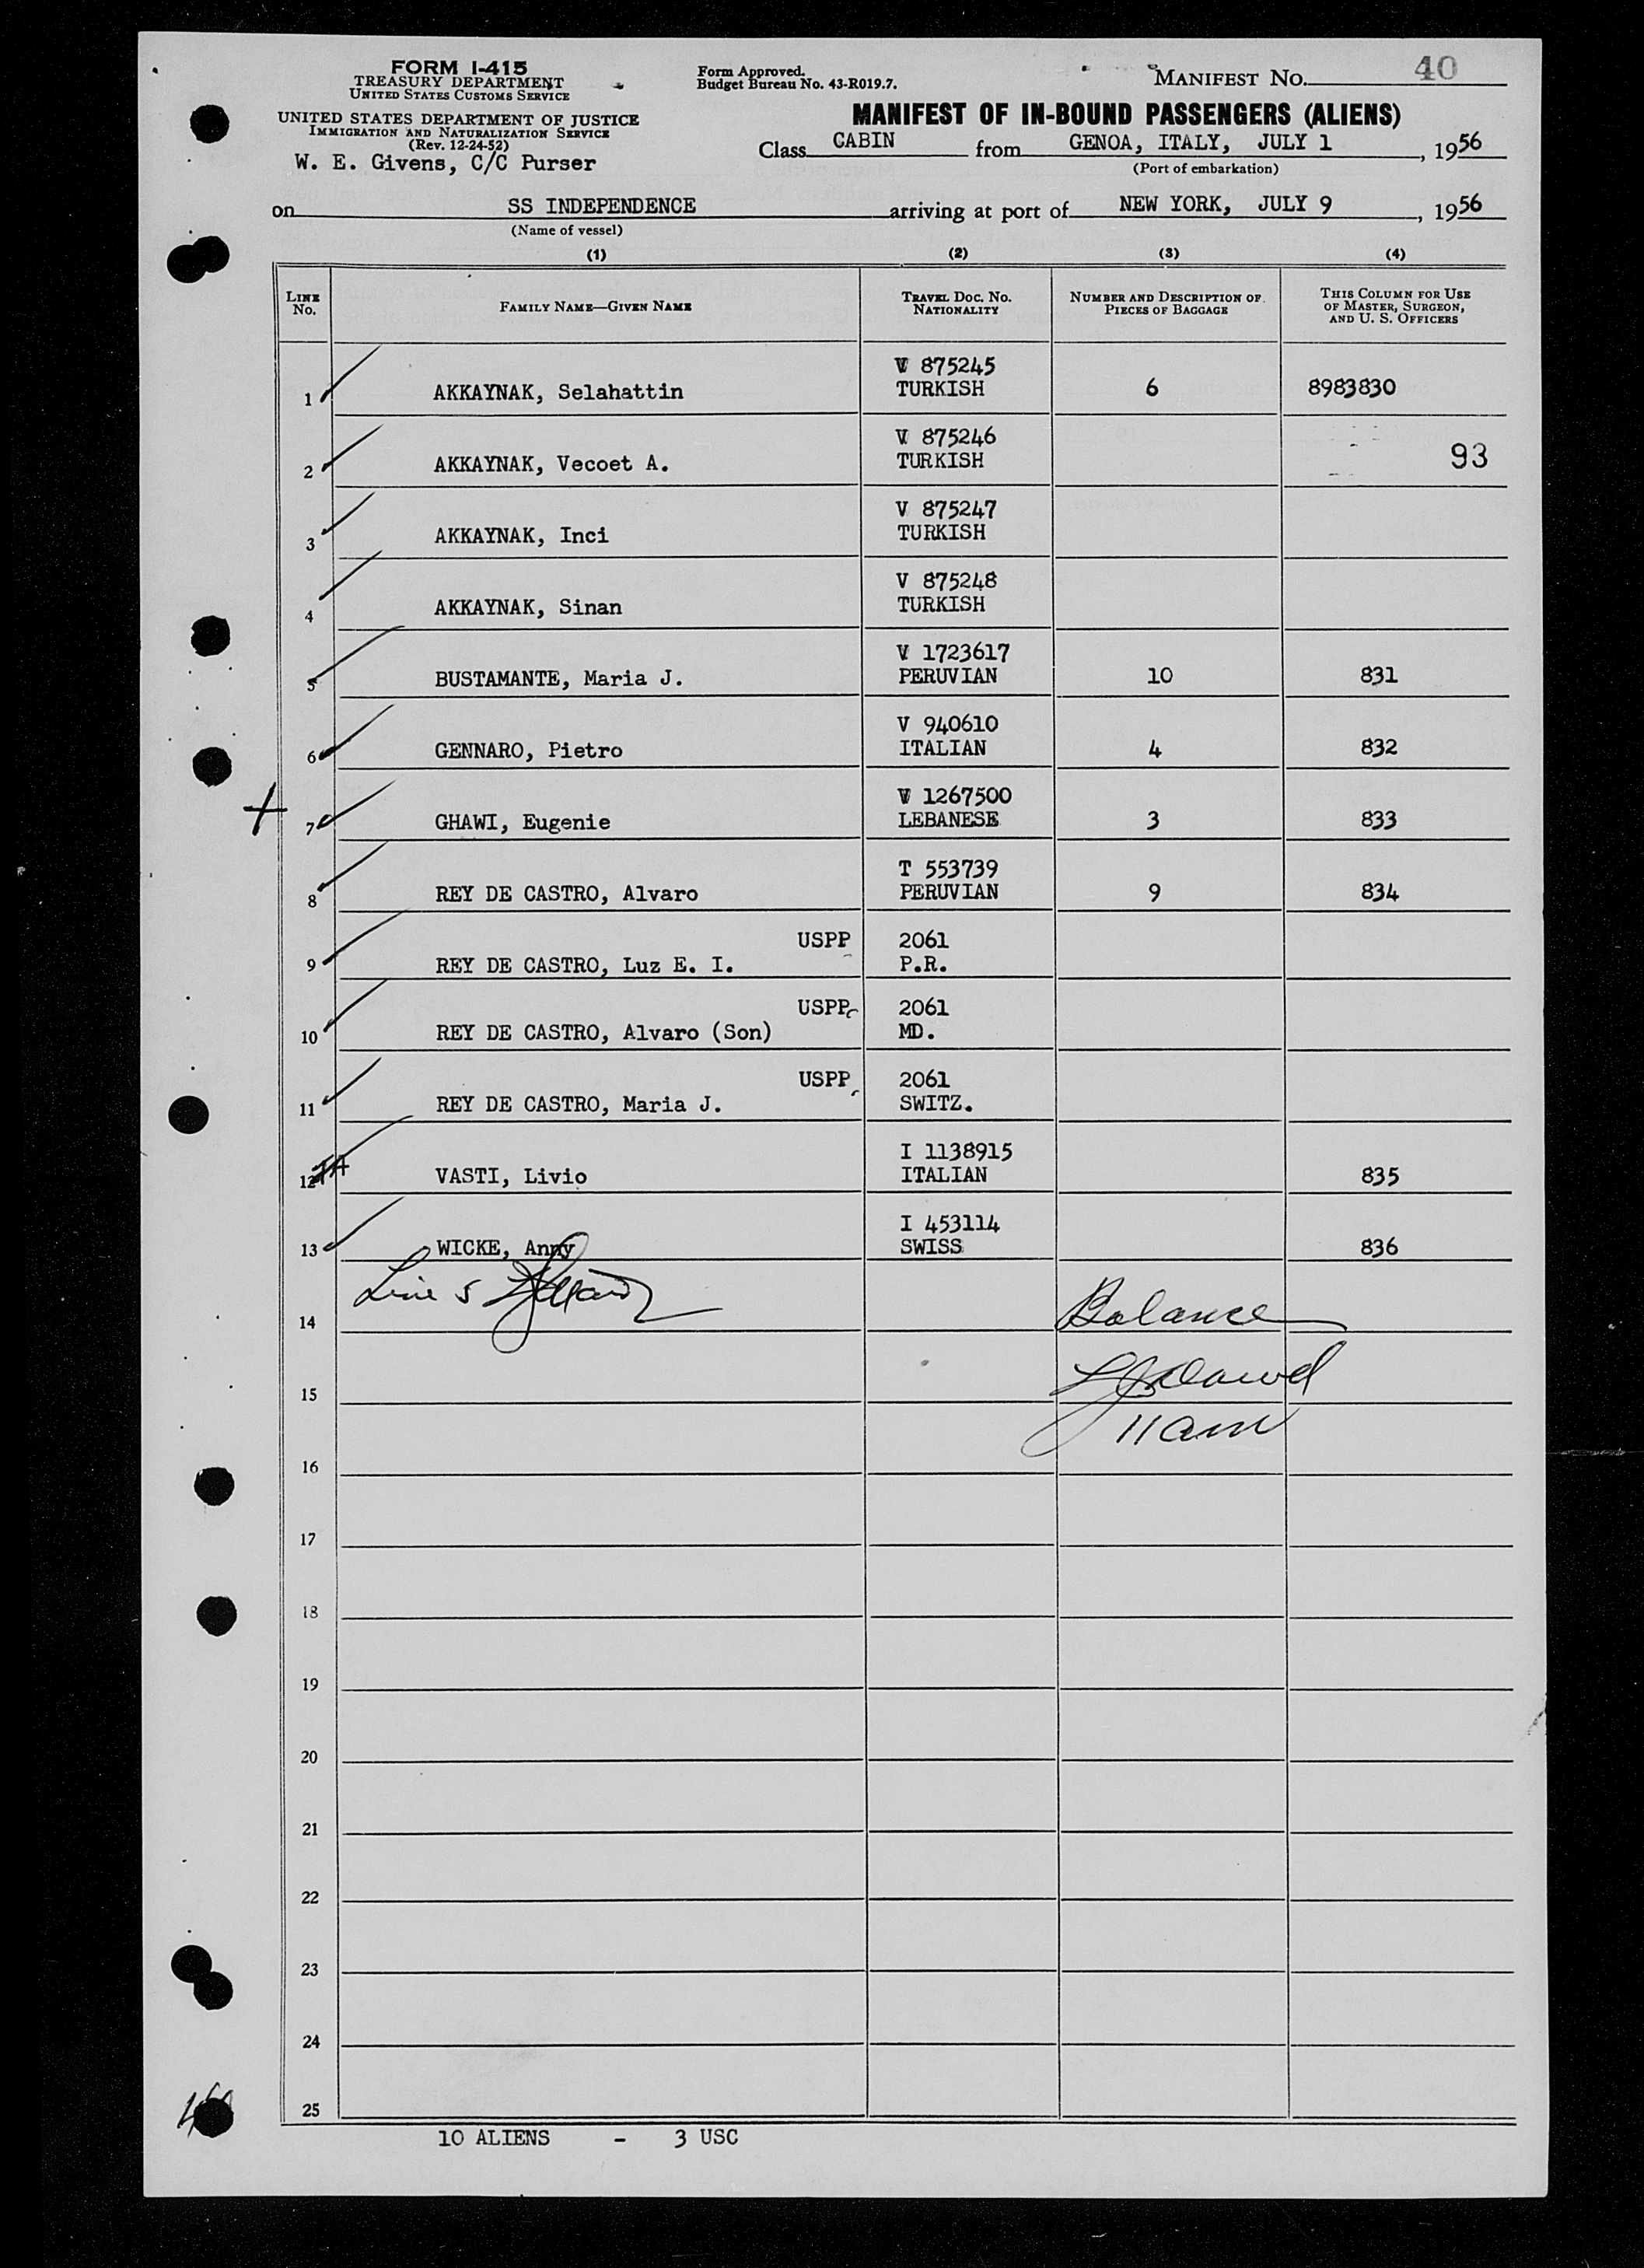 FORM I-415
TREASURY DEPARTMENT
UNITED STATES CUSTOMS SERVICE
UNITED STATES DEPARTMENT OF JUSTICE
IMMIGRATION AND NATURALIZATION SERVICE
(Rev. 12-24-52)
W. E. Givens, C/C Purser
Form Approved.
Budget Bureau No. 43-R019.7.
MANIFEST NO. 40
MANIFEST OF IN-BOUND PASSENGERS (ALIENS)
Class CABIN from GENOA, ITALY, JULY 1, 1956
(Port of embarkation)
on SS INDEPENDENCE arriving at port of NEW YORK, JULY 9, 1956
(Name of vessel)
(1) (2) (3) (4)
LINE No. FAMILY NAME—GIVEN NAME TRAVEL DOC. NO. NATIONALITY NUMBER AND DESCRIPTION OF PIECES OF BAGGAGE THIS COLUMN FOR USE OF MASTER, SURGEON, AND U. S. OFFICERS
V 875245
1 AKKAYNAK, Selahattin TURKISH 6 8983830
V 875246
2 AKKAYNAK, Vecoet A. TURKISH 93
V 875247
3 AKKAYNAK, Inci TURKISH
V 875248
4 AKKAYNAK, Sinan TURKISH
V 1723617
5 BUSTAMANTE, Maria J. PERUVIAN 10 831
V 940610
6 GENNARO, Pietro ITALIAN 4 832
V 1267500
7 GHAWI, Eugenie LEBANESE 3 833
T 553739
8 REY DE CASTRO, Alvaro PERUVIAN 9 834
USPP 2061
9 REY DE CASTRO, Luz E. I. P.R.
USPP 2061
10 REY DE CASTRO, Alvaro (Son) MD.
USPP 2061
11 REY DE CASTRO, Maria J. SWITZ.
I 1138915
12 VASTI, Livio ITALIAN 835
I 453114
13 WICKE, Anny SWISS 836
Line 5
14 Balance
15
11 am
16
17
18
19
20
21
22
23
24
25
10 ALIENS - 3 USC